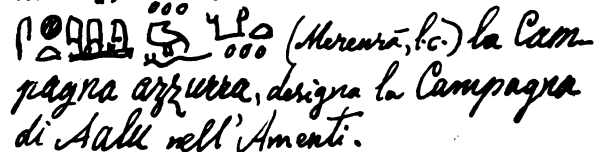 (Merenrā, l.c.) la Cam-
pagna azzurra, designa la Campagna
di Aalu nell'Amenti.